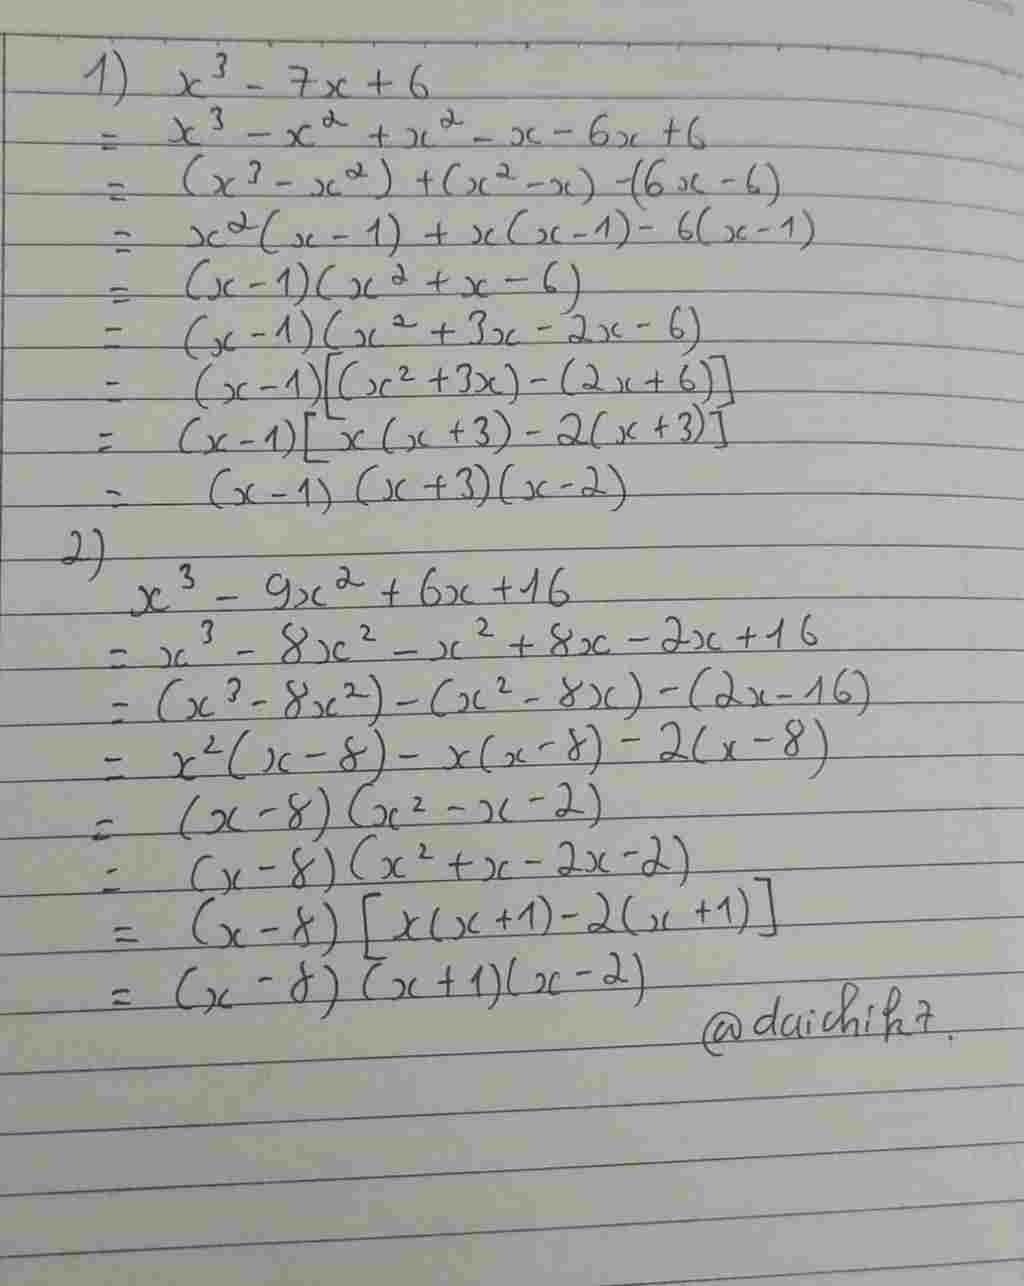 1) x³ - 7x + 6
= x³ - x² + x² - x - 6x + 6
= (x³ - x²) + (x² - x) - (6x - 6)
= x²(x - 1) + x(x - 1) - 6(x - 1)
= (x - 1)(x² + x - 6)
= (x - 1)(x² + 3x - 2x - 6)
= (x - 1)[(x² + 3x) - (2x + 6)]
= (x - 1)[x(x + 3) - 2(x + 3)]
= (x - 1)(x + 3)(x - 2)
2)
x³ - 9x² + 6x + 16
= x³ - 8x² - x² + 8x - 2x + 16
= (x³ - 8x²) - (x² - 8x) - (2x - 16)
= x²(x - 8) - x(x - 8) - 2(x - 8)
= (x - 8)(x² - x - 2)
= (x - 8)(x² + x - 2x - 2)
= (x - 8)[x(x + 1) - 2(x + 1)]
= (x - 8)(x + 1)(x - 2)